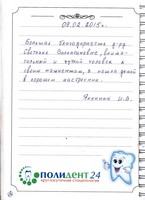 09.02.2015г.
Большая благодарность д-ру
Светлане Валентиновне, внима-
тельный и чуткий человек к
своим пациентам, я ушла домой
в хорошем настроении.
И.В.
ПОЛИДЕНТ 24
круглосуточная стоматология